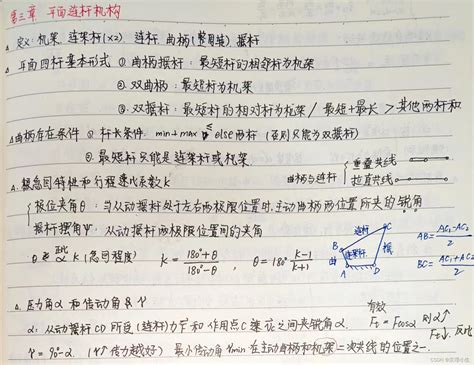 第三章 平面连杆机构
△ 定义: 机架 连架杆(x2) 连杆 曲柄(整周转) 摇杆
△ 平面四杆基本形式 ① 曲柄摇杆: 最短杆的相邻杆为机架
② 双曲柄: 最短杆为机架
③ 双摇杆: 最短杆的相对杆为机架 / 最短+最长 > 其他两杆和
△ 曲柄存在条件 ① 杆长条件 min+max ≤ else两杆 (否则只能为双摇杆)
② 最短杆只能是连架杆或机架
曲柄与连杆 重叠共线
拉直共线
△ 极急回特性和行程速比系数K
极位夹角θ: 当从动摇杆处于左右两极限位置时,主动曲柄两位置所夹的锐角
摇杆摆角ψ: 从动摇杆两极限位置间的夹角
θ 正比 K (急回程度) K = 180°+θ / 180°-θ , θ = 180° K-1 / K+1
连杆 C B 连架杆 摇 A D
AB = AC₂-AC₁ / 2
BC = AC₁+AC₂ / 2
△ 压力角α和传动角γ
α: 从动摇杆CD所受(连杆)力F和作用点C速度之间夹锐角α.
有效 Ft = Fcosα 则α↑ Ft↓ 反比
γ = 90°-α. (γ↑传力越好) 最小传动角γmin在主动曲柄和机架二次共线的位置之一.